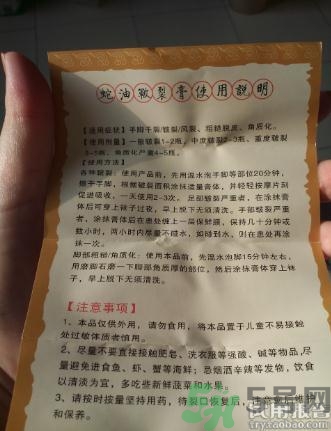 蛇油皲裂膏使用說明
【适用症状】手脚干裂/皲裂/风裂、粗糙脱皮、角质化。
【使用剂量】一般皲裂1-2瓶，中度皲裂2-3瓶，重度皲裂
3-5瓶，角质化严重4-5瓶。
【使用方法】
各种皲裂：使用产品前，先用温水泡手脚等部位20分钟，
擦干手脚，根据皲裂面积涂抹适量膏体，并轻轻按摩片刻
促进吸收，一天使用2-3次。足部皲裂严重者，在涂抹膏
体后可穿上袜子过夜，早上脱下无须清洗。手部皲裂严重
者，涂抹膏体后在患处缠上一层保鲜膜，保持几十分钟或
数小时，两小时内尽量不碰水，如碰到水，则在患处再涂
抹一次。
脚部粗糙/角质化：使用本品前，先温水泡脚15分钟左右，
用磨脚石磨一下脚部角质厚的部位，然后涂抹膏体穿上袜
子，早上脱下无须清洗。
【注意事项】
1、本品仅供外用，请勿食用，将本品置于儿童不易接触
处过敏体质者慎用。
2、尽量不要直接接触肥皂、洗衣服等强酸、碱等物品，尽
量避免进食鱼、虾、蟹等海鲜；忌烟酒辛辣等发物，饮食
以清淡为宜，多吃些新鲜蔬菜和水果。
3、请按时按量坚持用药，待裂口恢复后，注意愈后维护
和保养。
5号网
试用报告
try.taobao.com